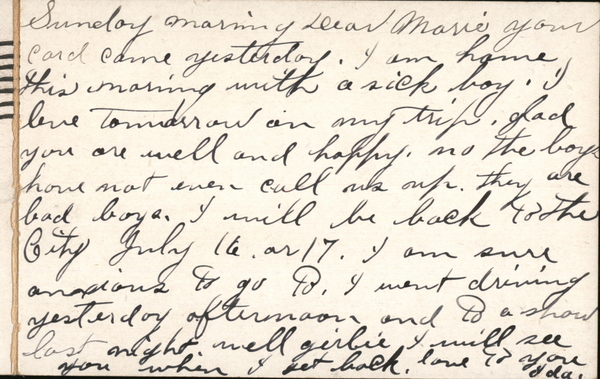 Sunday morning Dear Marie your
card came yesterday. I am home
this morning with a sick boy. I
leve tomorrow on my trip. glad
you are well and happy. no the boys
have not even call us up. they are
bad boys. I will be back to the
City July 16. or 17. I am sure
anxious to go to. I went driving
yesterday afternoon and to a show
last night. well girlie I will see
you when I get back. love to you
Ida.